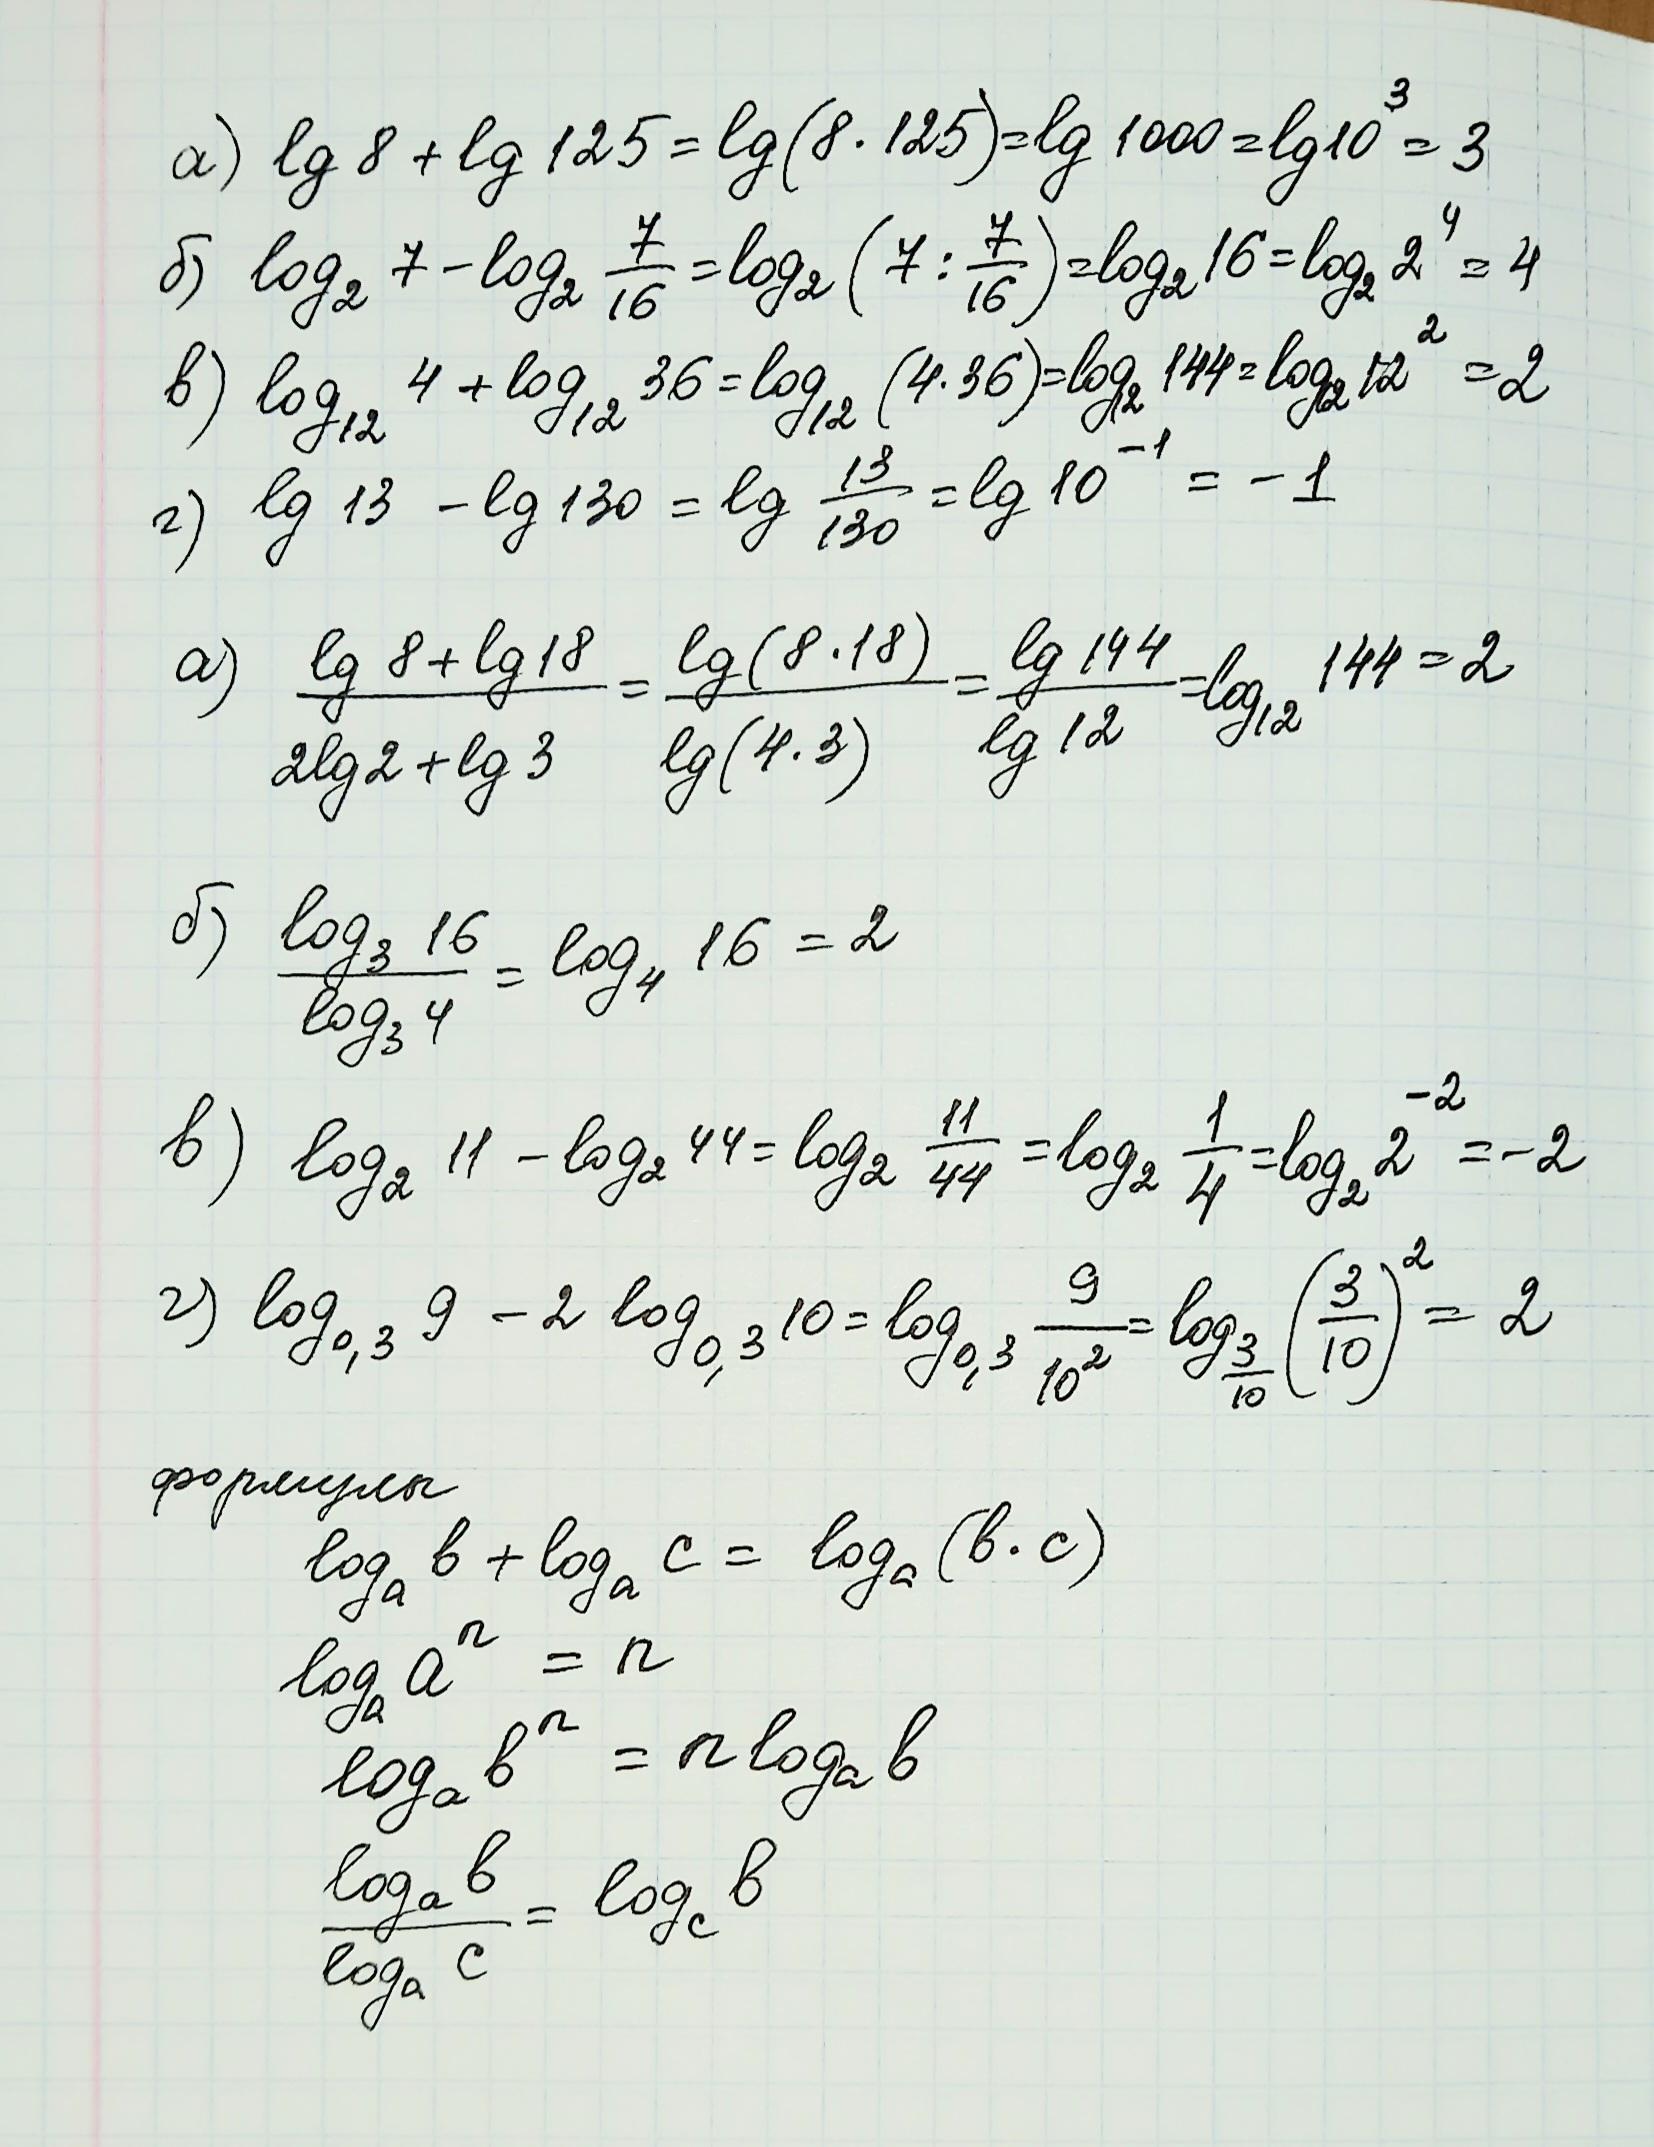 а) lg 8 + lg 125 = lg(8·125) = lg 1000 = lg 10³ = 3
б) log₂ 7 − log₂ 7/16 = log₂ (7 : 7/16) = log₂ 16 = log₂ 2⁴ = 4
в) log₁₂ 4 + log₁₂ 36 = log₁₂ (4·36) = log₁₂ 144 = log₁₂ 12² = 2
г) lg 13 − lg 130 = lg 13/130 = lg 10⁻¹ = −1
а) (lg 8 + lg 18)/(2lg 2 + lg 3) = lg(8·18)/lg(4·3) = lg 144/lg 12 = log₁₂ 144 = 2
б) log₃ 16/log₃ 4 = log₄ 16 = 2
в) log₂ 11 − log₂ 44 = log₂ 11/44 = log₂ 1/4 = log₂ 2⁻² = −2
г) log₀,₃ 9 − 2 log₀,₃ 10 = log₀,₃ 9/10² = log_(3/10) (3/10)² = 2
формулы
logₐ b + logₐ c = logₐ (b·c)
logₐ aⁿ = n
logₐ bⁿ = n logₐ b
logₐ b/logₐ c = log_c b